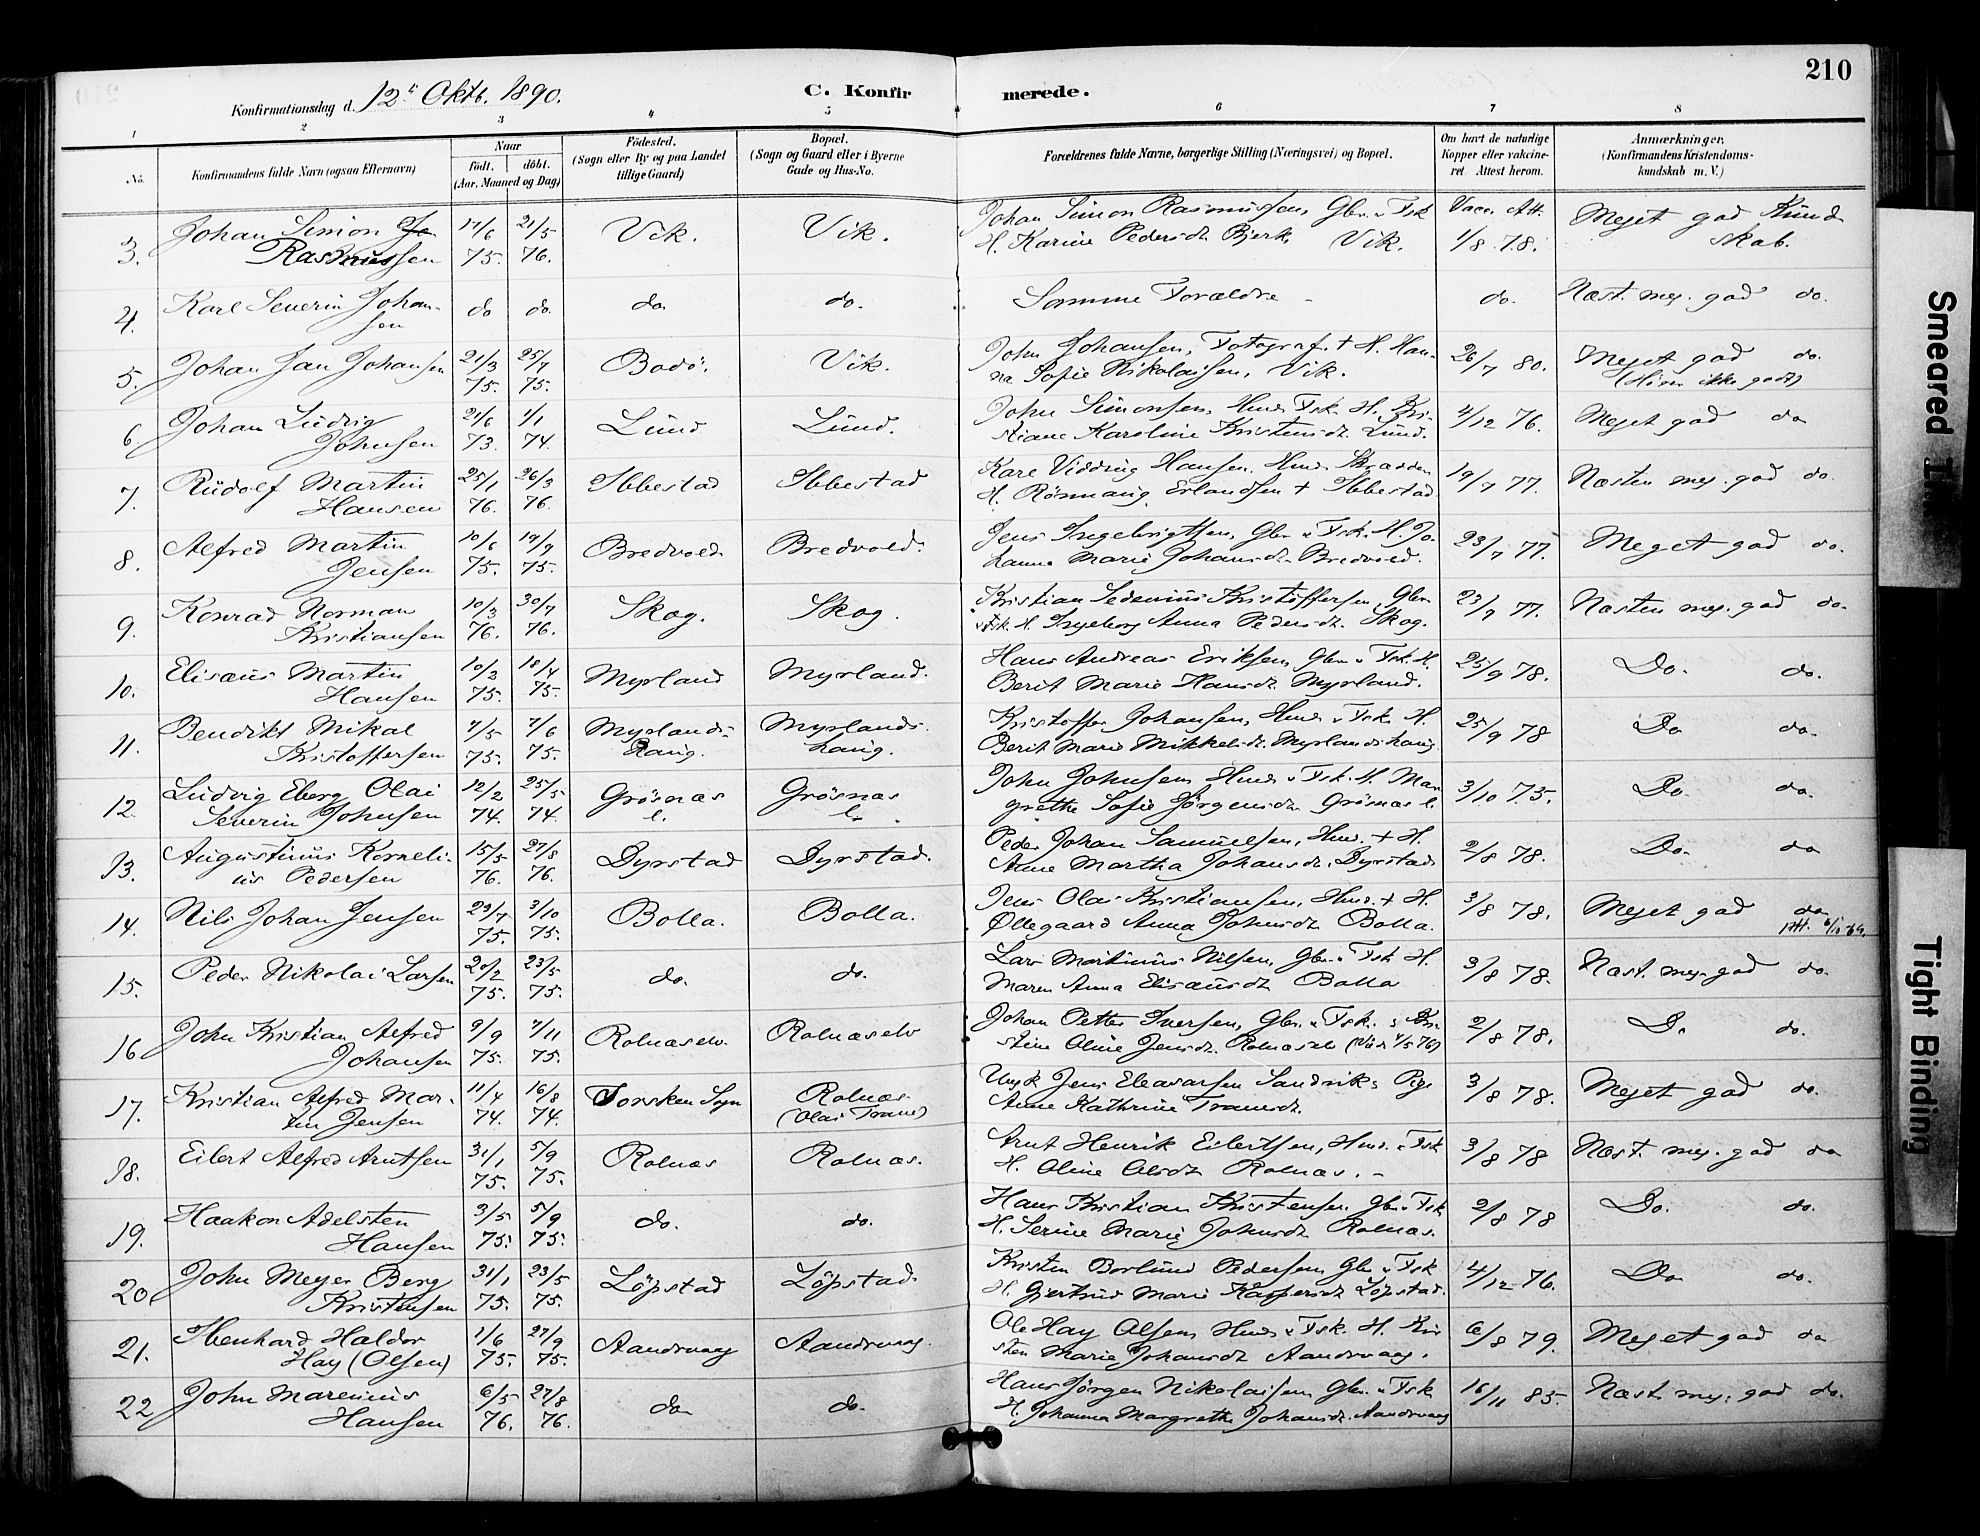 210
Konfirmationsdag d. 12te Oktb. 1890. C. Konfirmerede.
1 2 3 4 5 6 7 8
No. Konfirmandens fulde Navn (ogsaa Efternavn) Naar födt. döbt. (Aar, Maaned og Dag) Födested. (Sogn eller By og paa Landet tillige Gaard) Bopæl. (Sogn og Gaard eller i Byerne Gade og Hus-No. Forældrenes fulde Navne, borgerlige Stilling (Næringsvei) og Bopæl. Om havt de naturlige Kopper eller vakcineret. Attest herom. Anmærkninger. (Konfirmandens Kristendomskundskab m. V.)
3. Johan Simon Rasmussen 17/6 75. 21/5 76. Vik. Vik. Johan Simon Rasmussen, Gbr. & Fsk. H. Karine Pedersdt. Bjerk. Vik. Vacc. Att. 1/8 78. Meget god Kundskab.
4. Karl Severin Johansen do do. do do. Samme Forældre - do. Næst. meg. god do.
5. Johan Jan Johansen 21/3 75. 25/7 75. Bodö. Vik. John Johansen, Fotograf. + H. Hanna Sofie Nikolaisen, Vik. 26/7 80. Meget god do. (Hörer ikke godt)
6. Johan Ludvig Johnsen 21/6 73. 1/1 74. Lund Lund. John Simonsen Hmd. Fsk. H. Kristiane Karoline Kristensdt. Lund. 4/12 76. Meget god do
7. Rudolf Martin Hansen 25/1 76. 26/3 76. Ibbestad Ibbestad Karl Hansen. Hmd. Skrædder H. Rönnaug Erlandsen + Ibbestad 19/7 77. Næsten meg. god do.
8. Alfred Martin Jensen 10/6 75. 19/9 75. Bredvold. Bredvold. Jens Ingebrigtsen, Gbr. & Fsk. H. Johanna Marie Johansdt. Bredvold. 23/7 77. Meget god do.
9. Konrad Norman Kristiansen 10/3 76. 30/7 76. Skog. Skog. Kristian Sedenius Kristoffersen Gbr. & Fsk. H. Ingeborg Anna Pedersdt. Skog. 23/7 77. Næsten meg. god do.
10. Elisæus Martin Hansen 10/3 75. 18/4 75. Myrland Myrland. Hans Andreas Eriksen, Gbr. & Fsk. H. Berit Marie Hansdt. Myrland. 25/9 78. Do. do.
11. Bendikt Mikal Kristoffersen 7/5 75. 7/6 75. Myrlandshaug. Myrlandshaug. Kristoffer Johansen, Hmd. & Fsk. H. Berit Marie Mikkelsdt. Myrlandshaug. 25/9 78 Do do.
12. Ludvig Eberg Olai Severin Johnsen 12/2 74. 25/5 74. Grösnæs l. Grösnæs l. John Johnsen Hmd. & Fsk. H. Margrethe Sofie Jörgensdt. Grösnæs l. 3/10 75. Do. do.
13. Augustinus Kornelius Pedersen 15/5 76. 27/8 76. Dyrstad Dyrstad. Peder Johan Samuelsen, Hmd. + H. Anne Martha Johansdt. Dyrstad 2/8 78. Do. do
14. Nils Johan Jensen 29/7 75. 3/10 75. Bolla. Bolla. Jens Olai Kristiansen, Hmd. + H. Ollegaard Anna Johnsdt. Bolla. 3/8 78. Meget god do
15. Peder Nikolai Larsen 20/2 75. 23/5 75. do. do. Lars Martinus Nilsen, Gbr. & Fsk. H. Maren Anna Elisæusdt. Bolla 3/8 78. Næst. meg. god do.
16. John Kristian Alfred Johansen 9/9 75. 7/11 75. Rolnæselv. Rolnæselv Johan Petter Iversen, Gbr. & Fsk. & Kristine Oline Jensdt. Rolnæselv (Viet 4/5 76) 2/8 78. Do do.
17. Kristian Alfred Martin Jensen 11/4 74. 16/8 74. Torsken Sogn Rolnæs (Olai Trane) Ungk. Jens Eleasarsen Sandvik & Pige Anne Kathrine Tranesdt. 3/8 78. Meget god do.
18. Eilert Alfred Arntsen 31/1 75. 5/9 75. Rolnæs Rolnæs. Arnt Henrik Eilertsen, Hmd. & Fsk. H. Oline Olsdt. Rolnæs. - 3/8 78 Næst. meg. god do
19. Haakon Adelsten Hansen 3/5 75. 5/9 75. do. do. Hans Kristian Kristensen Gbr. & Fsk. H. Serine Marie Johnsdt. Rolnæs. 2/8 78 Do. do.
20. John Meyer Berg Kristensen 31/1 75. 23/5 75. Löpstad Löpstad. Kristen Borlund Pedersen Gbr. & Fsk. H. Gjertrud Marie Kaspersdt. Löpstad. 4/12 76. Do do.
21. Ibenhard Haldor Hay (Olsen) 1/6 75. 27/9 75. Aandervaag Aandervaag. Ole Hay Olsen Hmd. & Fsk. H. Kirsten Marie Johansdt. Aandervaag. 6/8 79. Meget god do
22. John Marenius Hansen 6/5 76. 27/8 76. do do. Hans Jörgen Nikolaisen Gbr. & Fsk. H. Johanna Margrethe Johansdt. Aandervaag 16/11 85. Næst meg. god do.
Smeared Ink
Tight Binding